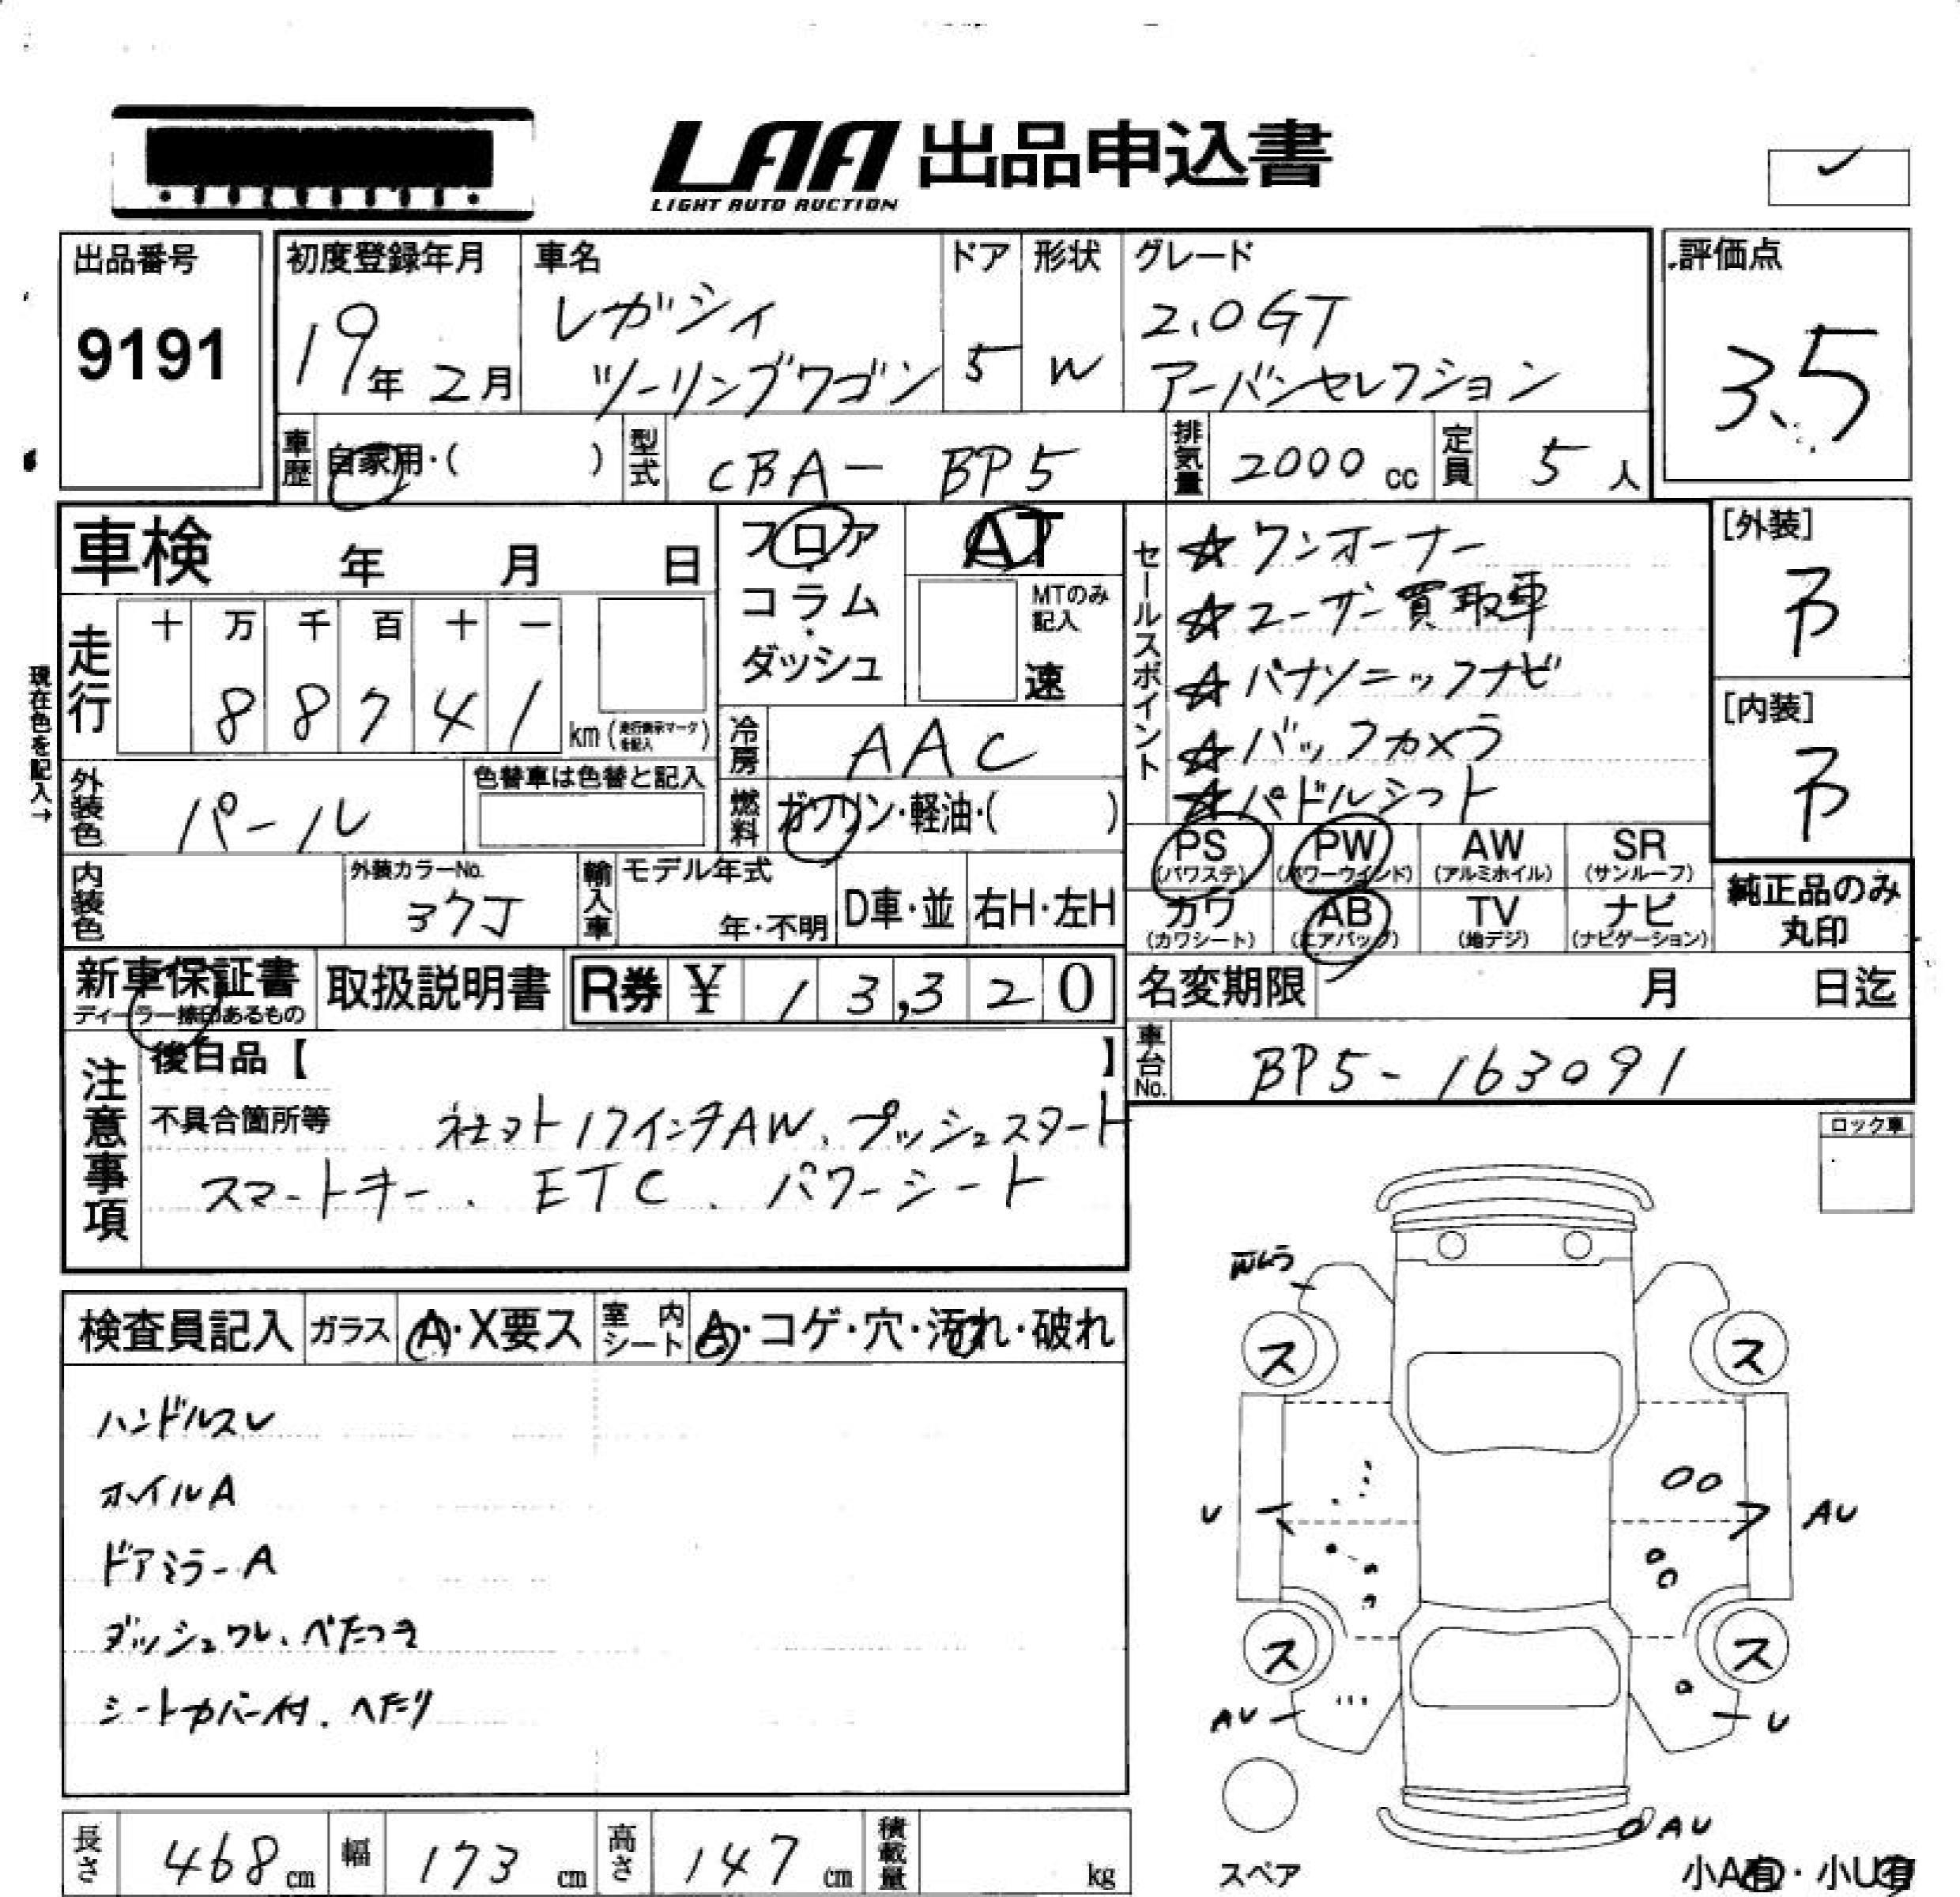 LAA 出品申込書
LIGHT AUTO AUCTION
出品番号
9191
初度登録年月
19年 2月
車名
レガシィ
ツーリングワゴン
ドア
5
形状
W
グレード
2.0GT
アーバンセレクション
評価点
3.5
車歴
自家用・( )
型式
CBA- BP5
排気量
2000 cc
定員
5 人
車検 年 月 日
フロア
・
コラム
・
ダッシュ
AT
MTのみ
記入
速
セールスポイント
☆ワンオーナー
☆ユーザー買取車
☆パナソニックナビ
☆バックカメラ
☆パドルシフト
[外装]
[内装]
現在色を記入→
走行
十 万 千 百 十 一
8 8 7 4 1
km (走行表示マークを記入)
冷房
AAC
外装色
パール
色替車は色替と記入
燃料
ガソリン・軽油・( )
PS
(パワステ)
PW
(パワーウインド)
AW
(アルミホイル)
SR
(サンルーフ)
内装色
外装カラーNo.
37J
輸入車
モデル年式
年・不明
D車・並
右H・左H
カワ
(カワシート)
AB
(エアバッグ)
TV
(地デジ)
ナビ
(ナビゲーション)
純正品のみ
丸印
新車保証書
ディーラー捺印あるもの
取扱説明書
R券 ¥ 13,320
名変期限 月 日迄
車台No.
BP5-163091
注意事項
後日品【 】
不具合箇所等
社外17インチAW、プッシュスタート
スマートキー、ETC、パワーシート
ロック車
検査員記入
ガラス
A・X要ス
室内シート
A・コゲ・穴・汚れ・破れ
ハンドルスレ
ホイルA
ドアミラーA
ダッシュワレ、べたつき
シートカバー付、へたり
ス
ス
U
AU
ス
ス
AU
U
AU
スペア
小A有・小U有
長さ
468 cm
幅
173 cm
高さ
147 cm
積載量
kg